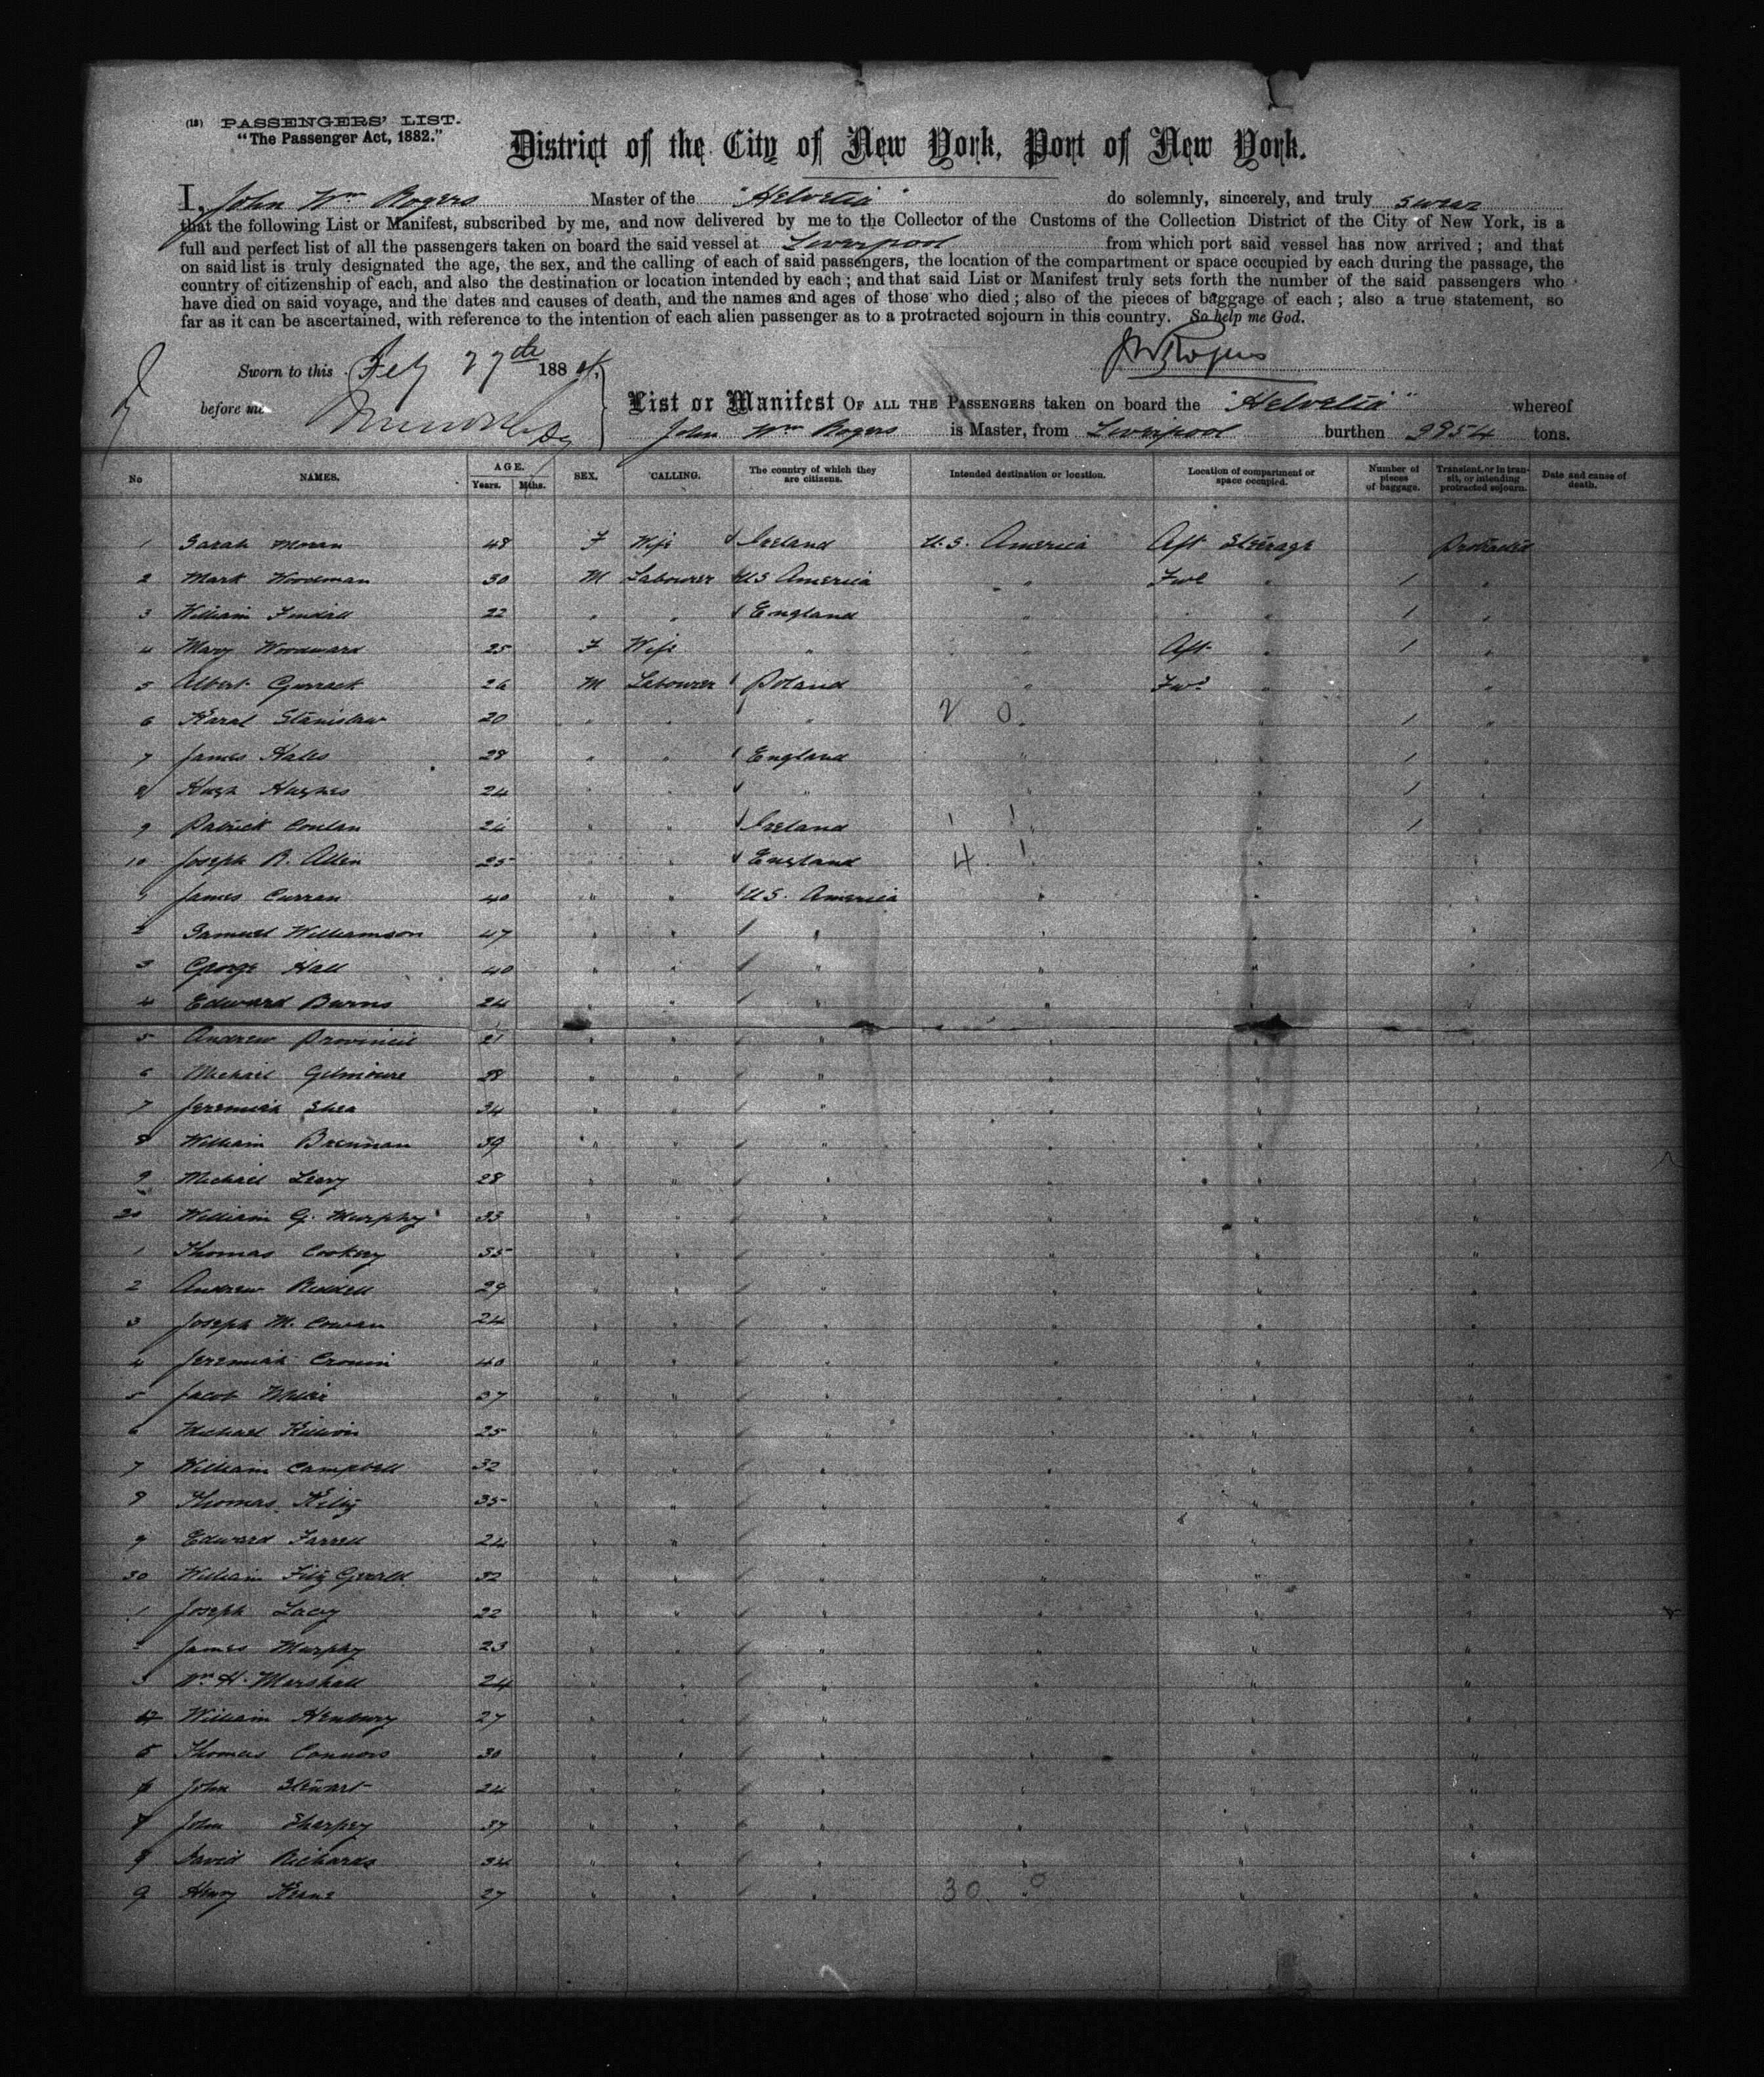 (18) PASSENGERS' LIST.
"The Passenger Act, 1882."
District of the City of New York, Port of New York.
I, John Wm Rogers Master of the "Helvetia" do solemnly, sincerely, and truly swear
that the following List or Manifest, subscribed by me, and now delivered by me to the Collector of the Customs of the Collection District of the City of New York, is a
full and perfect list of all the passengers taken on board the said vessel at Liverpool from which port said vessel has now arrived; and that
on said list is truly designated the age, the sex, and the calling of each of said passengers, the location of the compartment or space occupied by each during the passage, the
country of citizenship of each, and also the destination or location intended by each; and that said List or Manifest truly sets forth the number of the said passengers who
have died on said voyage, and the dates and causes of death, and the names and ages of those who died; also of the pieces of baggage of each; also a true statement, so
far as it can be ascertained, with reference to the intention of each alien passenger as to a protracted sojourn in this country. So help me God.
JWRogers
Sworn to this Feby 27th 1884,
before me
List or Manifest OF ALL THE PASSENGERS taken on board the "Helvetia" whereof
John Wm Rogers is Master, from Liverpool burthen tons.
No NAMES. AGE. Years. Mths. SEX. CALLING. The country of which they are citizens. Intended destination or location. Location of compartment or space occupied. Number of pieces of baggage. Transient, or in transit, or intending protracted sojourn. Date and cause of death.
1 Sarah Moran 48 F Wife Ireland U.S. America Aft Steerage Protracted
2 Mark Woodman 30 M Labourer US America " Fwd " 1 "
3 William Tindall 22 " " England " " " 1 "
4 Mary Woodward 25 F Wife " " Aft " 1 "
5 Albert 26 M Labourer Poland " Fwd " "
6 Karal Stanislaw 20 " " " 2 0 " 1 "
7 James Hales 28 " " England " " 1 "
8 Hugh Hughes 24 " " " " " 1 "
9 Patrick Conlan 24 " " Ireland 1 1 " 1 "
10 Joseph R. Allen 25 " " England 4 1 " "
1 James Curran 40 " " U.S. America " " "
2 Samuel Williamson 47 " " " " " "
3 George Hall 40 " " " " " "
4 Edward Burns 24 " " " " " "
5 Andrew 21 " " " " " "
6 Michael Gilmoure 28 " " " " " "
7 Jeremiah Shea 34 " " " " " "
8 William Brennan 39 " " " " " "
9 Michael Leary 28 " " " " " "
20 William G. Murphy 33 " " " " " "
1 Thomas Cookery 35 " " " " " "
2 Andrew Riddell 29 " " " " " "
3 Joseph M. Cowan 24 " " " " " "
4 Jeremiah Cronin 40 " " " " " "
5 Jacob 27 " " " " " "
6 Michael 25 " " " " " "
7 William Campbell 32 " " " " " "
8 Thomas 35 " " " " " "
9 Edward Farrell 24 " " " " " "
30 William Fitz Gerald 32 " " " " " "
1 Joseph Lacy 22 " " " " " "
2 James Murphy 23 " " " " " "
3 Wm H. Marshall 24 " " " " " "
4 William Henbury 27 " " " " " "
5 Thomas Connors 30 " " " " " "
6 John Stewart 24 " " " " " "
7 John Sharpey 37 " " " " " "
8 David Richards 34 " " " " " "
9 Henry Keane 27 " " " 30 0 " "